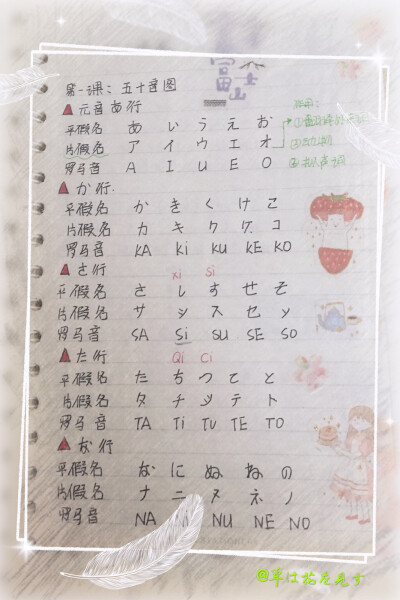 富士山
第一课：五十音图
元音あ行
平假名 あ い う え お
片假名 ア イ ウ エ オ
罗马音 A I U E O
か行.
平假名 か き く け こ
片假名 カ キ ク ケ コ
罗马音 KA Ki KU KE KO
さ行 xi Si
平假名 さ し す せ そ
片假名 サ シ ス セ ソ
罗马音 SA Si SU SE SO
た行 Qi Ci
平假名 た ち つ て と
片假名 タ チ ツ テ ト
罗马音 TA Ti TU TE TO
な行
平假名 な に ぬ ね の
片假名 ナ ニ ヌ ネ ノ
罗马音 NA NU NE NO